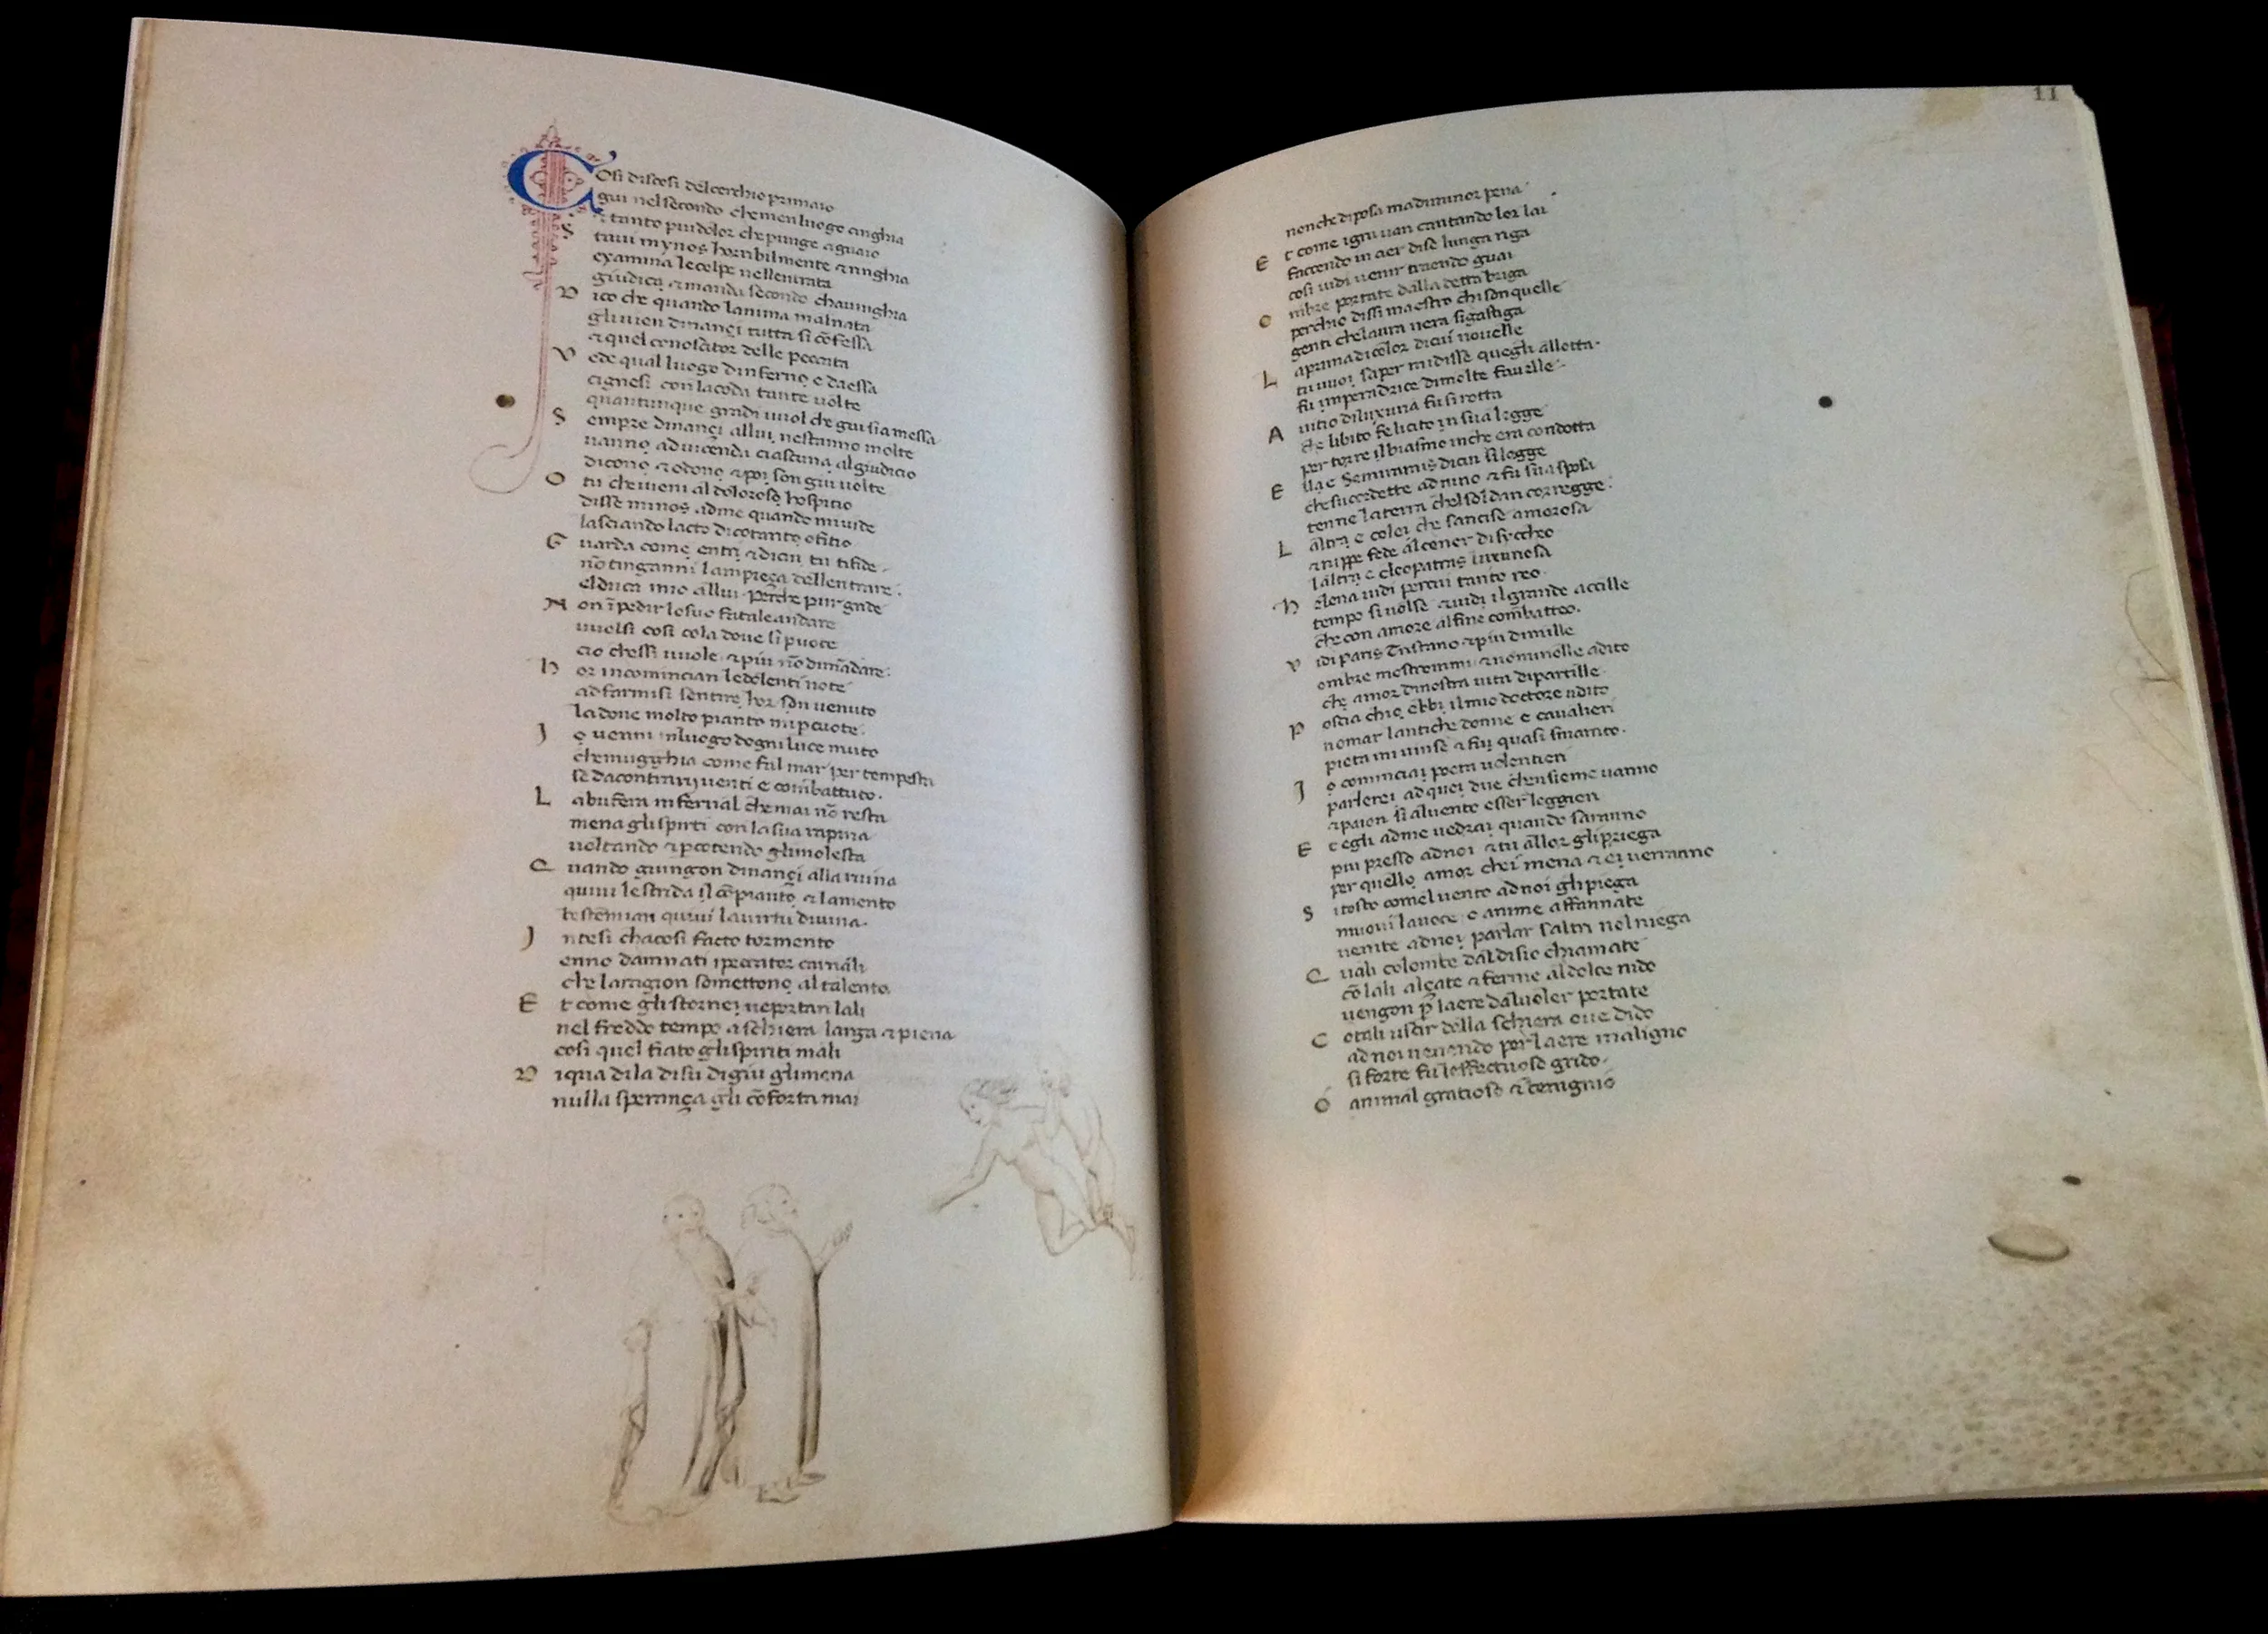 Cosi discesi del cerchio primaio
giu nel secondo che men luogo cinghia
& tanto piu dolor che punge a guaio
S tavi mynos horribilmente & ringhia
examina le colpe nellentrata
giudica & manda secondo chavinghia
D ico che quando lanima malnata
gli vien dinançi tutta si cōfessa
& quel conoscitor delle peccata
V ede qual luogo dinferno e da essa
cignesi con la coda tante volte
quantunque gradi vuol che giu sia messa
S empre dinançi allui nestanno molte
vanno a vicenda ciascuna al giudicio
dicono & odono & poi son giu volte
O tu che vieni al doloroso hospitio
disse minos adme quando mi vide
lasciando lacto di cotanto ofitio
G uarda come entri & di cui tu tifide
nō tinganni lampieça dellentrare
elduca mio allui perche pur gride
N on īpedir lo suo fatale andare
vuolsi cosi cola dove si puote
cio chessi vuole & piu nō dimādare
H or incomincian le dolenti note
ad farmisi sentire hor son venuto
la dove molto pianto mi pcuote
I o venni in luogo dogni luce muto
che mugghia come fa l mar per tempesta
se da contrarij venti e combattuto
L a bufera infernal che mai nō resta
mena gli spirti con la sua rapina
voltando & pcotendo gli molesta
Q uando giungon dinançi alla ruina
quivi le strida il cōpianto & lamento
bestēmian quivi la virtu divina
I ntesi cha cosi facto tormento
enno dannati i peccator carnali
che la ragion somettono al talento
E t come gli stornei ne portan lali
nel freddo tempo a schiera larga & piena
cosi quel fiato gli spiriti mali
D i qua di la di su di giu gli mena
nulla sperança gli cōforta mai
11
non che di posa ma di minor pena
E t come i gru van cantando lor lai
faccendo in aer di se lunga riga
cosi vidi venir traendo guai
O mbre portate dalla detta briga
perchio dissi maestro chi son quelle
genti che laura nera si gastiga
L a prima di color di cui novelle
tu vuoi saper mi disse quegli allotta
fu imperadrice di molte favelle
A vitio di luxuria fu si rotta
che libito fe licito in sua legge
per torre il biasmo in che era condotta
E lla e Semiramis di cui si legge
che succedette ad nino & fu sua sposa
tenne la terra chel soldan corregge
L altra e colei che sancise amorosa
& ruppe fede al cener di syccheo
laltra e cleopatras luxuriosa
H elena vidi per cui tanto reo
tempo si volse & vidi il grande accille
che con amore al fine combatteo
V idi paris Tristano & piu di mille
ombre mostrommi & nominolle adito
che amor di nostra vita dipartille
P oscia chio ebbi il mio doctore udito
nomar lantiche donne e cavalieri
pieta mi vinse & fui quasi smarrito
I o cominciai poeta volentieri
parlerei ad quei due chensieme vanno
& paion si al vento esser leggieri
E t egli adme vedrai quando saranno
piu presso ad noi & tu allor gli priega
per quello amor che i mena & ei verranno
S i tosto comel vento ad noi gli piega
muovi la voce o anime affannate
venite ad noi parlar saltri nol niega
Q uali colombe dal disio chiamate
cō lali alçate & ferme al dolce nido
vengon p laere dal voler portate
C otali uscir della schiera ove dido
ad noi venendo per laere maligno
si forte fu laffectuoso grido
O animal gratioso & benigno